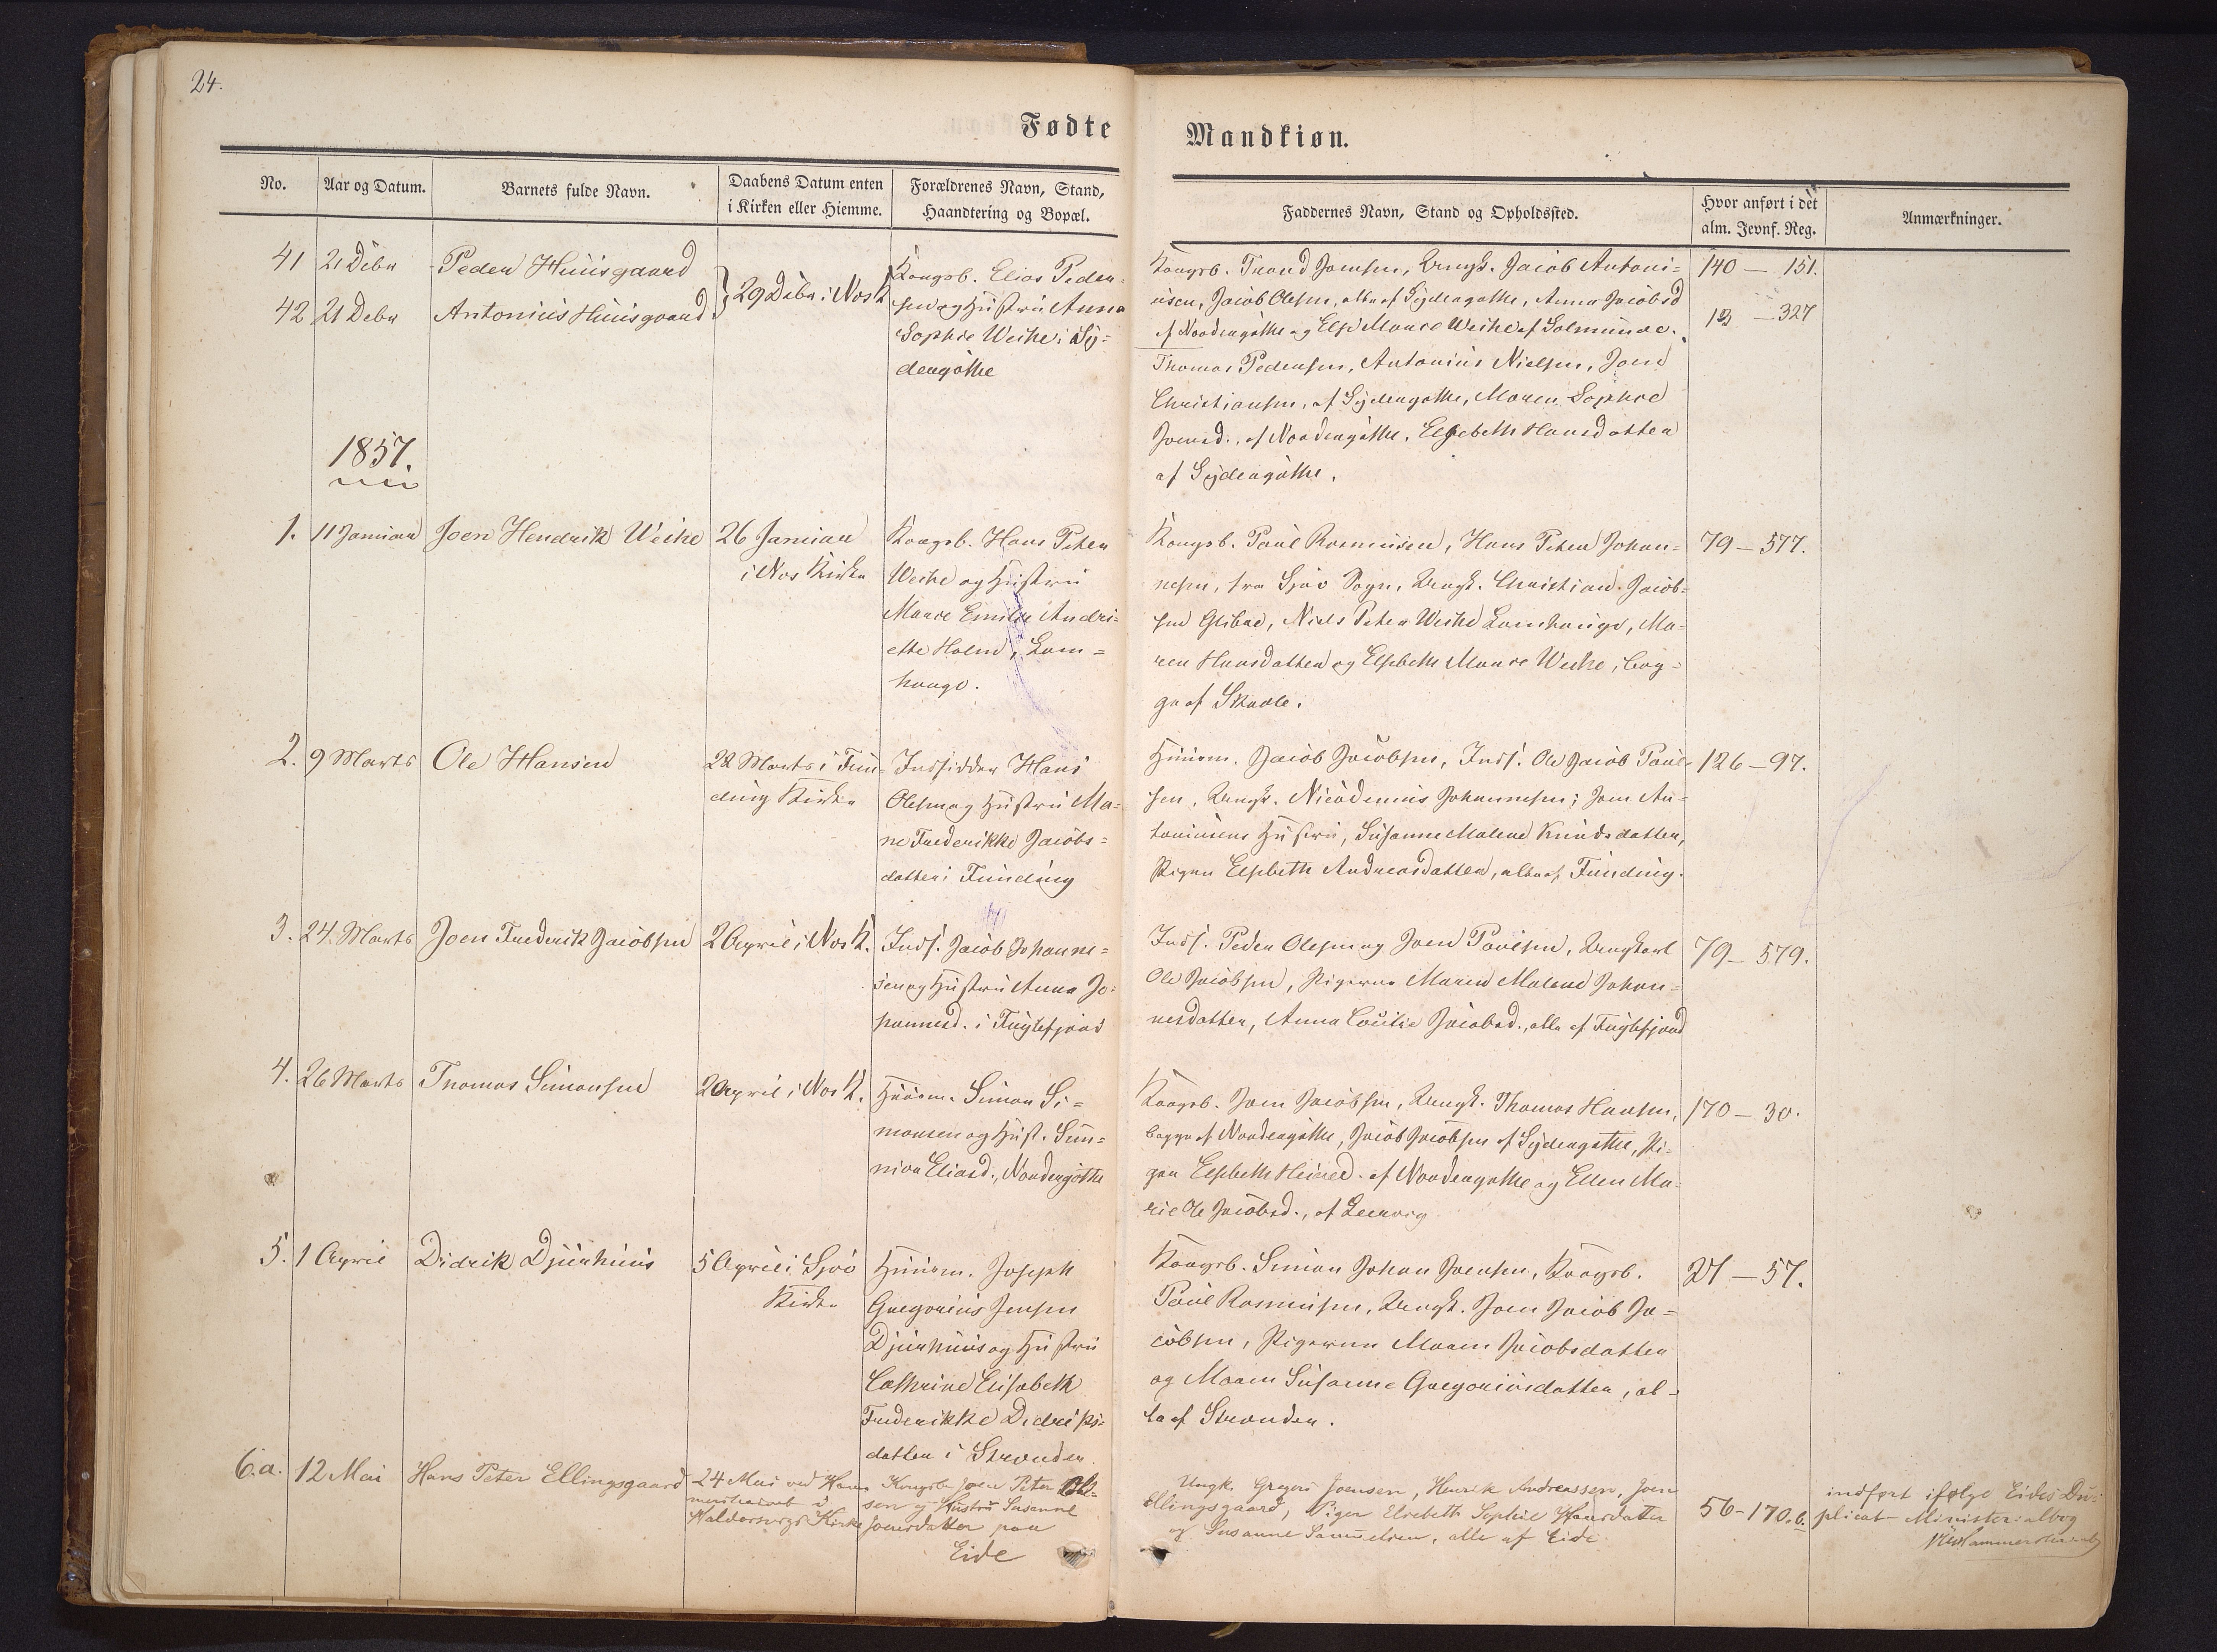 24.
Fødte
Mandkiøn.
No.
Aar og Datum.
Barnets fulde Navn.
Daabens Datum enten
i Kirken eller Hiemme.
Forældrenes Navn, Stand,
Haandtering og Bopæl.
Faddernes Navn, Stand og Opholdssted.
Hvor anført i det
alm. Jevnf. Reg.
Anmærkninger.
41
21 Debr
Peder Huusgaard
42
21 Debr
Antonius Huusgaard
29 Debr i Næs K
Kongsb. Elias Peder-
sen og Hustru Anna
Sophie Weihe i Sy=
dergöthe
Kongsb. Trond Joensen, Ungk. Jacob Antoni=
usen, Jacob Olesen, alle af Sydergøthe, Anna Jacobsd
af Nordregøthe og Else Marie Weihe af Solmunde.
Thomas Pedersen, Antonius Nielsen, Joen
Christiansen, af Sydergøthe, Maren Sophie
Joensd., af Nordregøthe, Elsebeth Hansdatter
af Sydergøthe.
140 — 151.
— 327
1857.
1.
11 Januar
Joen Hendrik Weihe
26 Januar
i Næs Kirke
Kongsb. Hans Peter
Weihe og Hustru
Marie Emilie Andri=
ette Holm, Lam=
hauge.
Kongsb. Poul Rasmusen, Hans Peter Johan=
nesen, fra Sjøv Sogn, Ungk. Christian Jacob=
sen Glibre, Niels Peter Weihe Lamhauge, Ma=
ren Hansdatter og Elsbeth Marie Weihe, beg=
ge af Skaale.
79 — 577.
2.
9 Marts
Ole Hansen
22 Marts i Fun=
ding Kirke
Indsidder Hans
Olesen og Hustru Ma=
ne Frederikke Jacobs=
datter i Funding
Huusm. Jacob Jacobsen, Inds. Ole Jacob Poul-
sen, Ungk. Nicodemus Johannesen; Joen An=
toniusens Hustru, Susanne Malene Knudsdatter,
Pigen Elsbeth Andreasdatter, alle af Funding.
126 — 97.
3.
24. Marts
Joen Frederik Jacobsen
2 April i Næs K.
Inds. Jacob Johanne=
sen og Hustru Anna Jo=
hannesd. i Fuglefjord
Inds. Peder Olesen og Joen Poulsen, Ungkarl
Ole Jacobsen, Pigerne Maren Malene Johan=
nesdatter, Anna Jacobsd., alle af Fuglefjord
79 — 579.
4.
26 Marts
Thomas Simonsen
2 April i Næs K.
Huusm. Simon Si=
monsen og Hust. Sun=
niva Eliasd., Nordregöthe
Kongsb. Joen Jacobsen, Ungk. Thomas Hansen,
begge af Nordregøthe, Jacob Jacobsen af Sydergøthe, Pi=
gen Elsbeth af Nordregøthe og Ellen Ma=
rie Ole Jacobsd., af Leervig
170 — 30.
5.
1 April
Didrik Djurhuus
5 April i Sjov
Kirke
Huusm. Joseph
Gregorius Jensen
Djurhuus og Hustru
Cathrine Elisabeth
Frederikke Didriks=
datter i Strender
Kongsb. Simon Johan Joensen, Kongsb.
Poul Rasmusen, Ungk. Joen Jacob Ja=
cobsen, Pigerne Maren Jacobsdatter
og Maren Susanne Gregoriusdatter, al=
le af Strender.
21 — 57.
6.a.
12 Mai
Hans Peter Ellingsgaard
24 Mai ved Ham
mershaimb i
Haldersvigs Kirke
Kongsb. Joen Peter Ol=
sen og Hustru Susanne
Joensdatter paa
Eide
Ungk. Gregers Joensen, Henrik Andreassen, Joen
Ellingsgaard, Piger Elsebeth Sophie Hansdatter
og Susanne Samuelsen, alle af Eide
56 - 170.b.
indført ifølge Eides Du=
plicat-Ministerialbog
VUHammershaimb